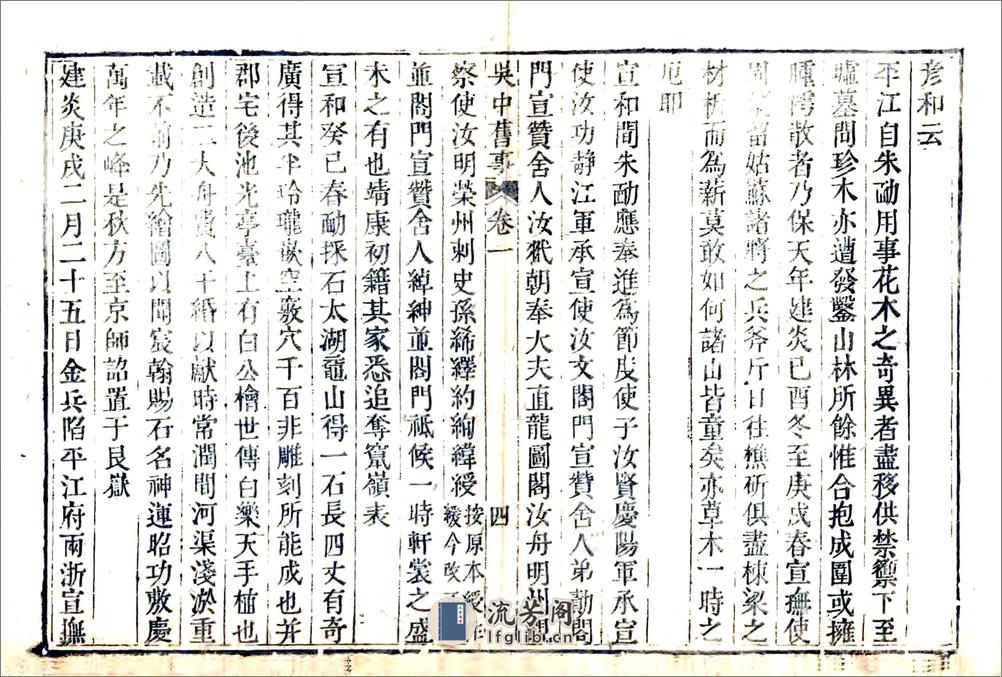 彦和云
平江自朱勔用事花木之奇異者盡移供禁籞下至
墟墓間珍木亦遭發鑿山林所餘惟合抱成圍或擁
腫樗散者乃保天年建炎己酉冬至庚戌春宣撫使
周望留姑蘇諸將之兵斧斤日往樵斫俱盡棟梁之
材析而為薪莫敢如何諸山皆童矣亦草木一時之
厄耶
宣和間朱勔應奉進為節度使子汝賢慶陽軍承宣
使汝功靜江軍承宣使汝文閤門宣贊舍人弟勣閤
門宣贊舍人汝翼朝奉大夫直龍圖閣汝舟明州觀
吳中舊事 卷一 四
察使汝明榮州刺史孫絺繹約絢緯綬
按原本綬
緩今改正
並閤門宣贊舍人綽紳並閤門祗候一時軒裳之盛
未之有也靖康初籍其家悉追奪竄嶺表
宣和癸巳春勔採石太湖黿山得一石長四丈有奇
廣得其半玲瓏嵌空竅穴千百非雕刻所能成也并
郡宅後池光亭臺上有白公檜世傳白樂天手植也
創造二大舟費八千緡以獻時常潤間河渠淺淤重
載不前乃先繪圖以聞宸翰賜石名神運昭功敷慶
萬年之峰是秋方至京師詔置于艮嶽
建炎庚戌二月二十五日金兵陷平江府兩浙宣撫
流芳阁
lfglib.cn